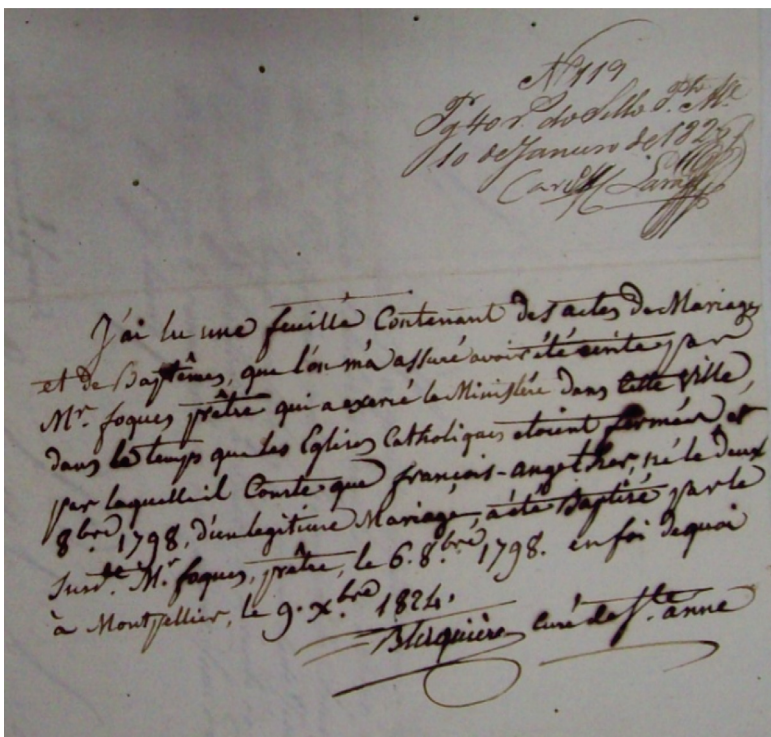 Nº 119
Pg 40 r. do Sello
10 de Janeiro de 182
J'ai lu une feuille Contenant des actes de Mariages
et de Baptêmes, que l'on m'a assuré avoir été écrite par
Mr. foques prêtre qui a exercé le Ministére dans Cette Ville,
dans le temps que les Eglises Catholiques étoient fermées et
par laquelle il Conste que françois-ange
né le deux
8bre 1798, d'un legitime Mariage, a été Baptisé par le
susdt. Mr. foques, prêtre, le 6. 8bre 1798. en foi de quoi
à Montpellier, le 9. xbre 1824.
curé de Ste. anne